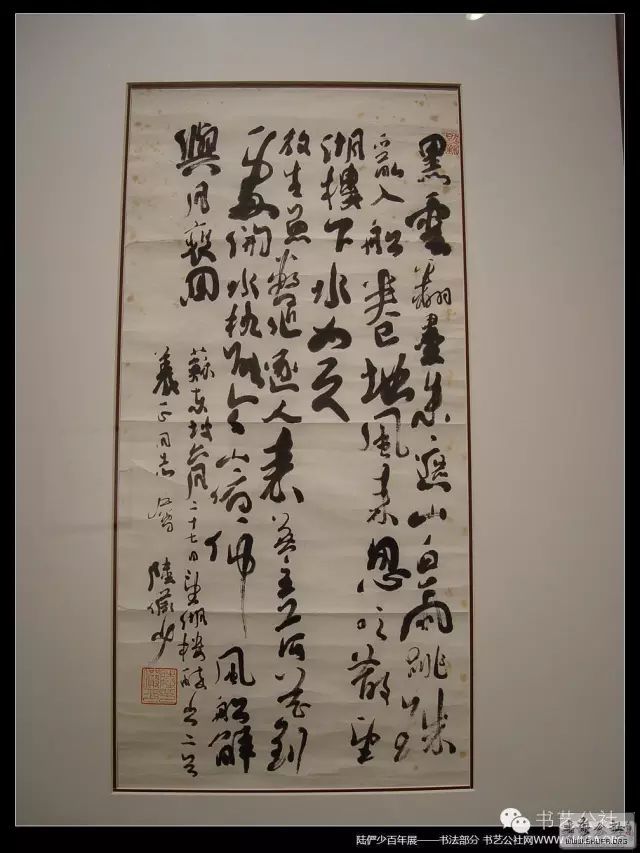 黑雲翻墨未遮山白雨跳珠
亂入船卷地風来忽吹散望
湖樓下水如天
放生魚鱉逐人来無主荷花到
處開水枕能令山俯仰風船解
與月裴回
蘇東坡六月二十七日望湖樓醉书二首
義正同志屬 陸儼少
书艺公社
陆俨少百年展——书法部分 书艺公社网www